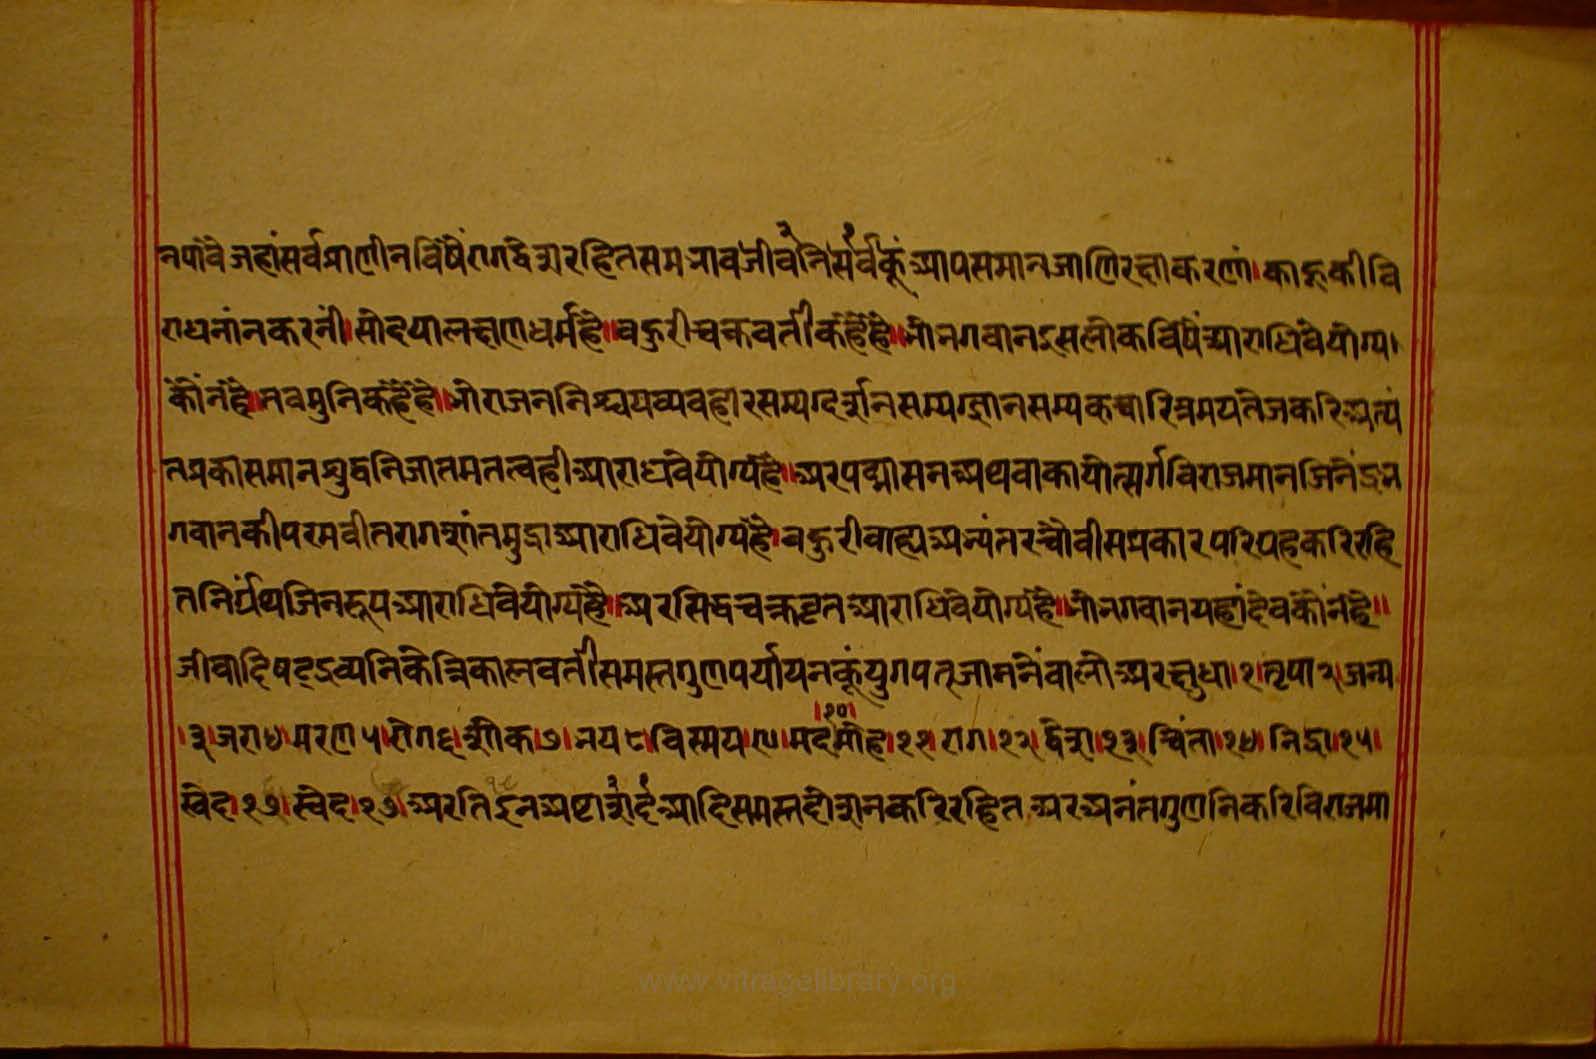 न पावै जहां सर्व प्राणीन विषैं राग द्वेश रहित सम भाव जीवनि सर्वकूं आप समान जाणि रक्षा करणां। काहू की वि
राधनां न करनीं। सो दया लक्षण धर्म है॥ बहुरी चक्रवर्ती कहैं है॥ भो भगवान इस लोक विषैं आराधिवे योग्य।
कौंन है॥ तब मुनि कहैं है॥ भो राजन निश्चय व्यवहार सम्यग्दर्शन सम्यग्ज्ञान सम्यक चारित्रमय तेज करि अत्यं
त प्रकासमान शुद्ध निजातम तत्व ही आराधवे योग्य है॥ अर पद्मासन अथवा कायोत्सर्ग विराजमान जिनेंद्र भ
गवान की परम वीतराग शांत मुद्रा आराधिवे योग्य है॥ बहुरी वाह्य अभ्यंतर चौवीस प्रकार परिग्रह करि रहि
त निर्ग्रंथ जिन रूप आराधिवे योग्य है॥ अर सिद्धचक्र वृत आराधिवे योग्य है॥ भो भगवान यहां देव कौंन है॥
जीवादि षट् द्रव्यनि के त्रिकालवर्ती समस्त गुण पर्यायनकूं युगपत् जाननैंवालो अर क्षुधा।१। तृषा २। जन्म
।३। जरा ४। मरण ५। रोग ६। शोक।७। भय ८। विस्मय।९। मद।१०। मोह।११। राग।१२। द्वेश।१३। चिंता।१४। निद्रा।१५।
खेद।१६। स्वेद।१७। अरति इन अष्टादश आदि समस्त दोशन करि रहित अर अनंत गुणनि करि विराजमा
www.vitragelibrary.org